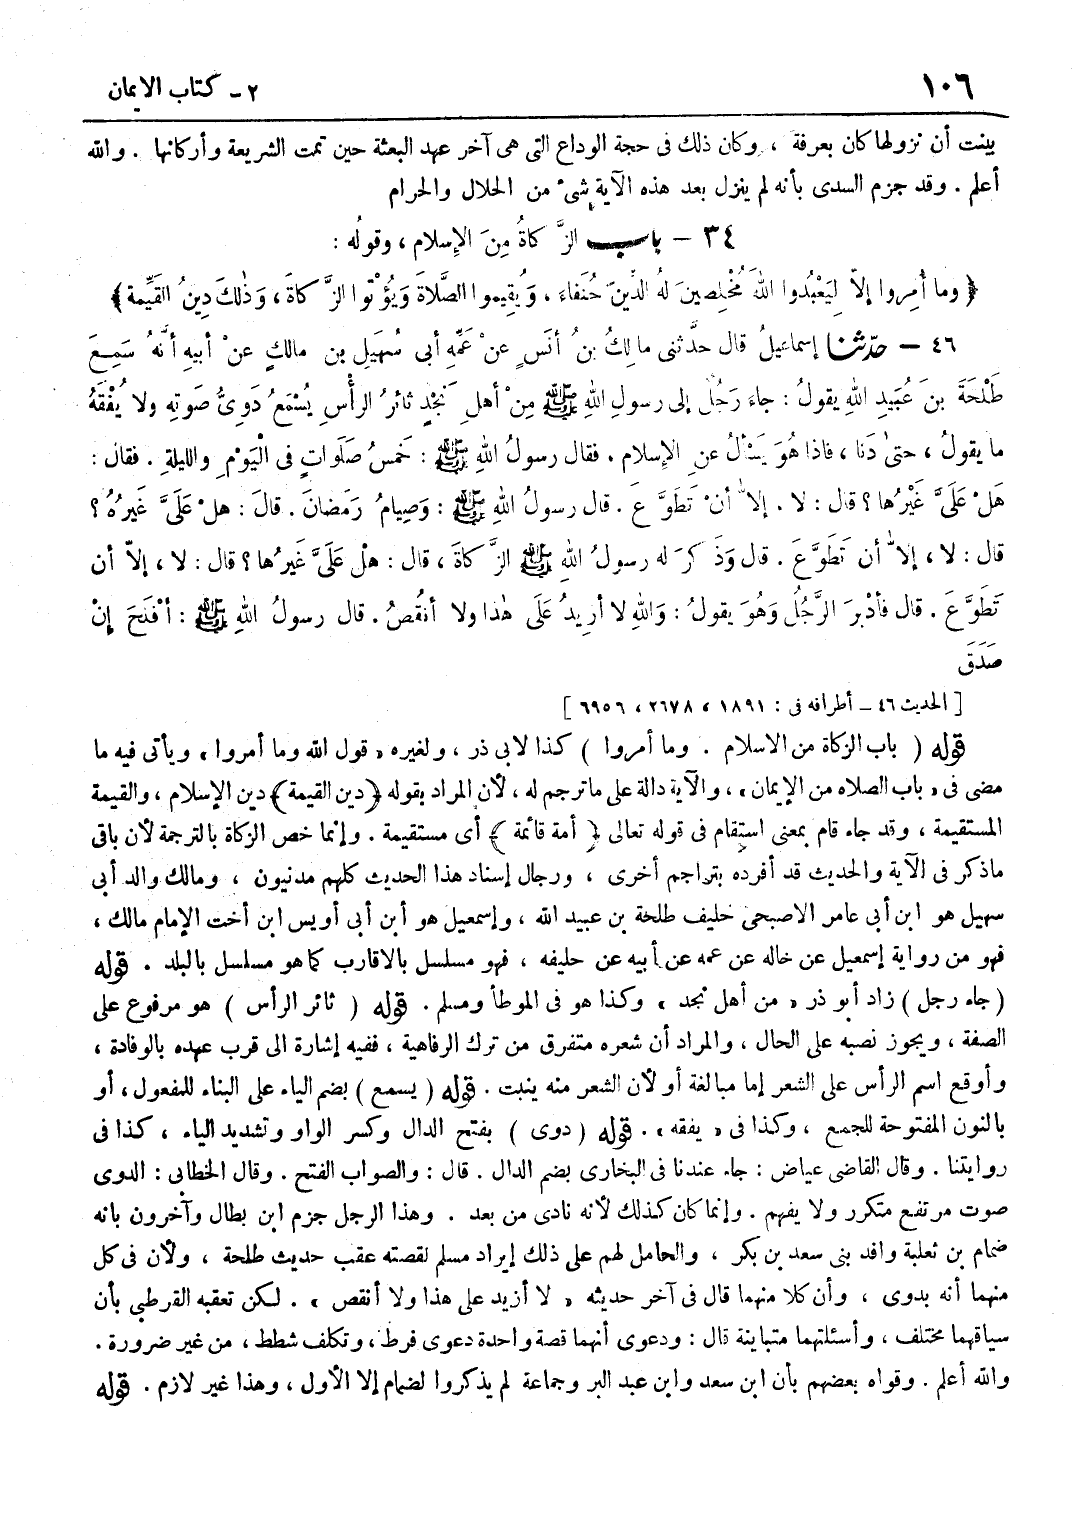 ١٠٦
٢ - كتاب الايمان
بينت أن نزولها كان بعرفة ، وكان ذلك فى حجة الوداع التى هى آخر عهد البعثة حين تمت الشريعة وأركانها . والله
أعلم . وقد جزم السدى بأنه لم ينزل بعد هذه الآية شىء من الحلال والحرام
٣٤ - باب الزَّكاةُ مِنَ الإِسلام ، وقولُه :
﴿ وما أُمِروا إلاّ لِيَعْبُدوا اللهَ مُخْلِصينَ لهُ الدِّينَ حُنَفاءَ ، ويُقِيموا الصَّلاةَ ويُؤْتوا الزَّكاةَ ، وَذٰلكَ دِينُ القَيِّمة ﴾
٤٦ - حدّثنا إسماعيلُ قال حدَّثنى مالكُ بنُ أنَسٍ عنْ عَمِّهِ أبى سُهَيلِ بن مالكٍ عنْ أبيهِ أنَّهُ سَمِعَ
طَلْحَةَ بنَ عُبَيدِ اللهِ يقولُ : جاءَ رَجُلٌ إلى رسولِ اللهِ ﷺ مِنْ أهلِ نَجْدٍ ثائرُ الرأْسِ يُسْمَعُ دَوِىُّ صَوتِهِ ولا يُفْقَهُ
ما يقولُ ، حتىٰ دَنا ، فاذا هُوَ يَسْأَلُ عنِ الإِسلام . فقال رسولُ اللهِ ﷺ : خَمسُ صَلَواتٍ فى الْيَوْمِ والليلةِ . فقال :
هَلْ عَلَىَّ غَيْرُها ؟ قال : لا . إلاّ أنْ تَطَوَّعَ . قال رسولُ اللهِ ﷺ : وَصِيامُ رَمَضانَ . قالَ : هلْ عَلَىَّ غَيرُهُ ؟
قال : لا ، إلاّ أن تَطَوَّعَ . قال وَذَكرَ له رسولُ اللهِ ﷺ الزَّكاةَ ، قال : هلْ عَلَىَّ غَيرُها ؟ قال : لا ، إلاّ أن
تَطَوَّعَ . قال فأدْبرَ الرَّجُلُ وهُوَ يقولُ : وَاللهِ لا أزيدُ عَلَى هٰذا ولا أنقُصُ . قال رسولُ اللهِ ﷺ : أفْلَحَ إنْ
صَدَقَ
[ الحديث ٤٦ - أطرافه فى : ١٨٩١ ، ٢٦٧٨ ، ٦٩٥٦ ]
قوله ( باب الزكاة من الاسلام . وما أمروا ) كذا لابى ذر ، ولغيره « قول الله وما أمروا » ويأتى فيه ما
مضى فى « باب الصلاه من الإيمان » ، والآية دالة على ما ترجم له ، لأن المراد بقوله ﴿ دين القيمة ﴾ دين الإسلام ، والقيمة
المستقيمة ، وقد جاء قام بمعنى استقام فى قوله تعالى ﴿ أمة قائمة ﴾ أى مستقيمة . وإنما خص الزكاة بالترجمة لأن باقى
ماذكر فى الآية والحديث قد أفرده بتراجم أخرى ، ورجال إسناد هذا الحديث كلهم مدنيون ، ومالك والد أبى
سهيل هو ابن أبى عامر الاصبحى حليف طلحة بن عبيد الله ، وإسمعيل هو ابن أبى أويس ابن أخت الإمام مالك ،
فهو من رواية إسمعيل عن خاله عن عمه عن أبيه عن حليفه ، فهو مسلسل بالاقارب كما هو مسلسل بالبلد . قوله
( جاء رجل ) زاد أبو ذر « من أهل نجد » وكذا هو فى الموطأ ومسلم . قوله ( ثائر الرأس ) هو مرفوع على
الصفة ، ويجوز نصبه على الحال ، والمراد أن شعره متفرق من ترك الرفاهية ، ففيه إشارة الى قرب عهده بالوفادة ،
وأوقع اسم الرأس على الشعر إما مبالغة أو لأن الشعر منه ينبت . قوله ( يسمع ) بضم الياء على البناء للمفعول ، أو
بالنون المفتوحة للجمع ، وكذا فى « يفقه » . قوله ( دوى ) بفتح الدال وكسر الواو وتشديد الياء ، كذا فى
روايتنا . وقال القاضى عياض : جاء عندنا فى البخارى بضم الدال . قال : والصواب الفتح . وقال الخطابى : الدوى
صوت مرتفع متكرر ولا يفهم . وإنما كان كذلك لأنه نادى من بعد . وهذا الرجل جزم ابن بطال وآخرون بانه
ضمام بن ثعلبة وافد بنى سعد بن بكر ، والحامل لهم على ذلك إيراد مسلم لقصته عقب حديث طلحة ، ولأن فى كل
منهما أنه بدوى ، وأن كلا منهما قال فى آخر حديثه « لا أزيد على هذا ولا أنقص » . لكن تعقبه القرطبي بأن
سياقهما مختلف ، وأسئلتهما متباينة قال : ودعوى أنهما قصة واحدة دعوى فرط ، وتكلف شطط ، من غير ضرورة .
والله أعلم . وقواه بعضهم بأن ابن سعد وابن عبد البر وجماعة لم يذكروا لضمام إلا الأول ، وهذا غير لازم . قوله